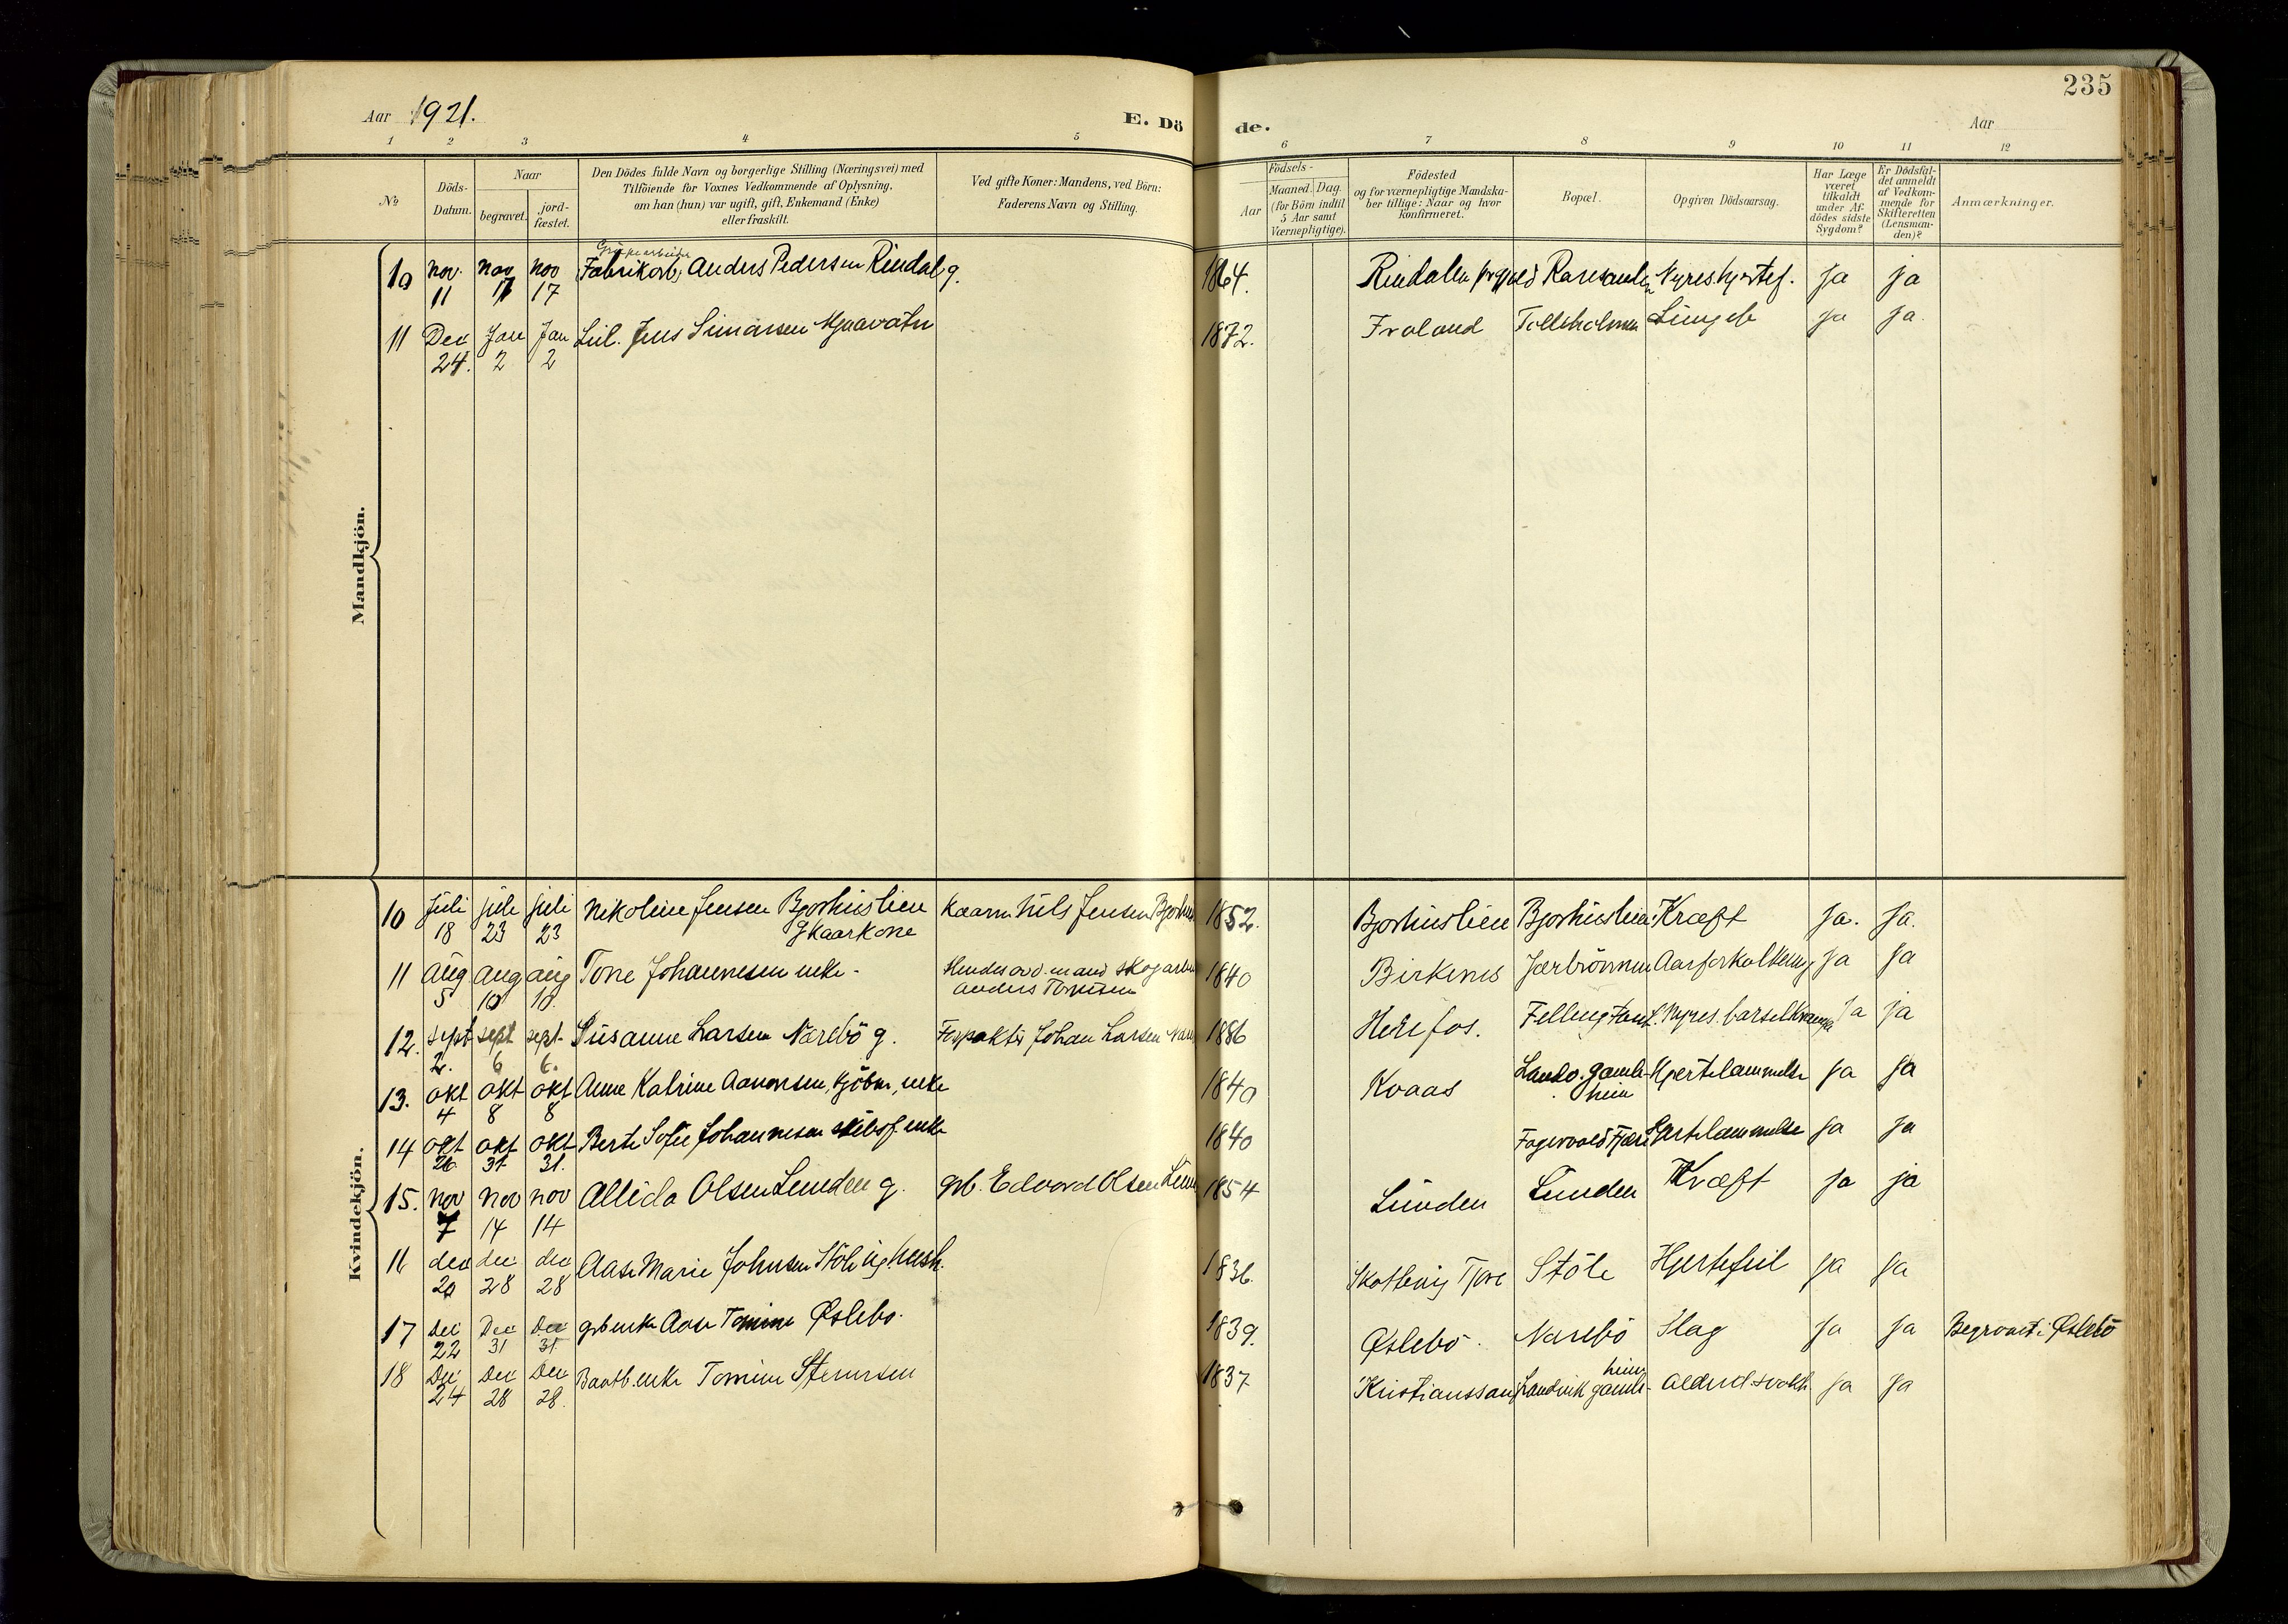 235
Aar 1921.
E. Dö de.
Aar
1 2 3 4 5 6 7 8 9 10 11 12
№
Döds-Datum.
Naar
begravet.
jord-fæstet.
Den Dödes fulde Navn og borgerlige Stilling (Næringsvei) med
Tilföiende for Voxnes Vedkommende af Oplysning,
om han (hun) var ugift, gift, Enkemand (Enke)
eller fraskilt.
Ved gifte Koner: Mandens, ved Börn:
Faderens Navn og Stilling.
Födsels-
Aar
Maaned. Dag.
(for Börn indtil
5 Aar samt
Værnepligtige).
Födested
og for værnepligtige Mandska-
ber tillige: Naar og hvor
konfirmeret.
Bopæl.
Opgiven Dödsaarsag.
Har Læge
været
tilkaldt
under Af-
dödes sidste
Sygdom?
Er Dödsfal-
det anmeldt
af Vedkom-
mende for
Skifteretten
(Lensman-
den)?
Anmærkninger.
Mandkjön.
10 nov. 11 nov 17 nov 17 Fabrikarb. Anders Pedersen Rindal g. 1864. Rindalen Nyres. hjertef. Ja ja
11 Dec 24. Jan 2 Jan 2 Jens Simonsen Mjaavatn 1872. Froland Tellsholmen Lungeb Ja Ja.
Kvindekjön.
10 juli 18 juli 23 juli 23 Nikoline Jensen Bjorhuslien g kaarkone Kaarm Nils Jensen Bjorhus 1852. Bjorhuslien Bjorhuslien Kræft Ja. Ja.
11 aug 5 aug 10 aug 10. Tone Johannesen enke - Hendes avd. mand skogarbei Anders Tomesen 1840 Birkenes Aareforkalkning Ja Ja
12. sept 2. sept 6 sept 6. Susanne Larsen Narebö g. Johan Larsen Nare 1886 Herefos. Nyres. barselkrampe Ja ja
13. okt 4 okt 8 okt 8 Anne Katrine Aanonsen, enke 1840 Kvaas Landv. gamleheim Hjertelammelse Ja Ja
14 okt 26 okt 31 okt 31. Berte Sofie Johannesen skibsf. enke 1840 Fagervold Fjære Hjertelammelse Ja Ja
15. nov 7 nov 14 nov 14 Allida Olsen Lunden g. grb. Edvard Olsen Lun 1854 Lunden Lunden Kræft Ja ja
16 dec 20 dec 28 dec 28 Aase Marie Johnsen Stöle ug. hush. 1836. Stöle Hjertefeil Ja Ja
17 Dec 22 Dec 31 Dec 31 grb enke Aase Tomine Øslebö. 1839. Øslebö. Narebö Slag Ja Ja Begravet i Øslebö
18 Dec 24 Dec 28 Dec 28. enke Tomine 1837 Kristianssand Landvik gamleheim Alderd.svakh. Ja Ja